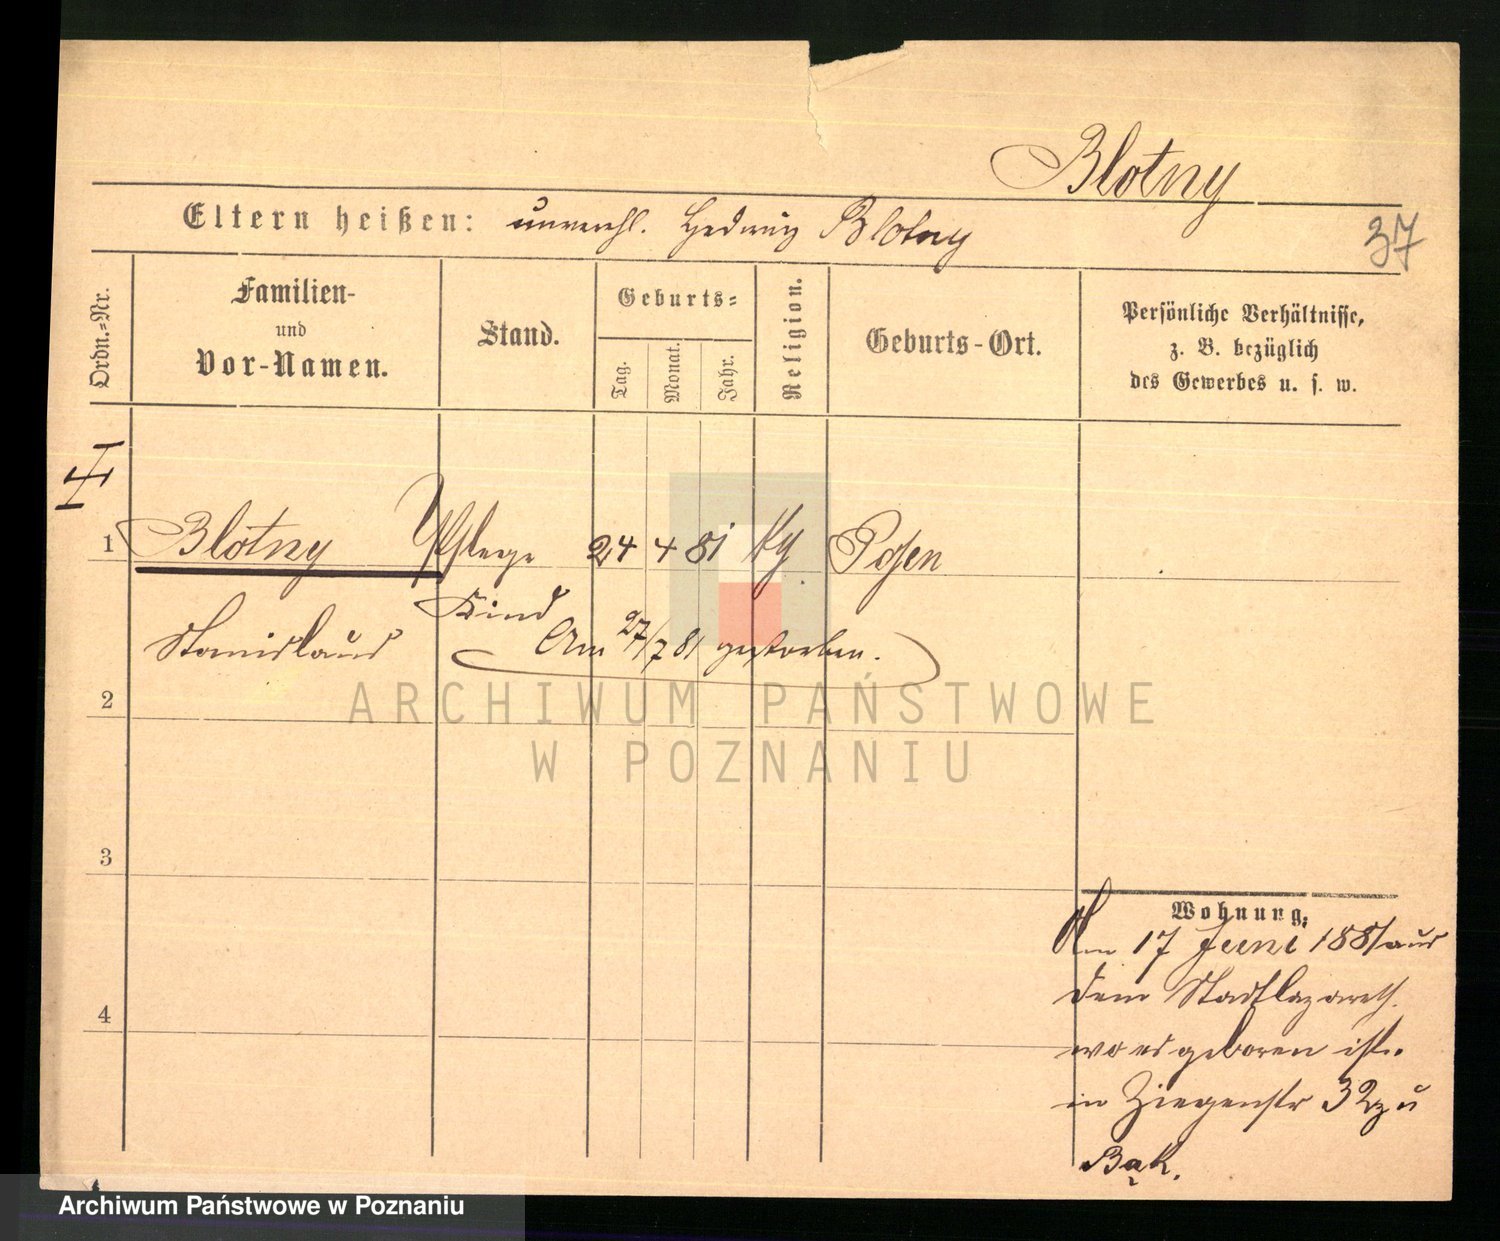 Blotny
Eltern heißen: unverehl. Hedwig Blotny
37
Ordn.-Nr.
Familien-
und
Vor-Namen.
Stand.
Geburts-
Tag.
Monat.
Jahr.
Religion.
Geburts-Ort.
Persönliche Verhältnisse,
z. B. bezüglich
des Gewerbes u. s. w.
1 Blotny Pflege 24 4 81 Posen
Kind
Stanislaus
Am 27/7 81 gestorben.
ARCHIWUM PAŃSTWOWE
W POZNANIU
2
3
4
Wohnung.
Am 17 Juni 1881 aus
dem Stadtlazareth.
wo es geboren ist.
in Ziegenstr 32 zu
Bąk.
Archiwum Państwowe w Poznaniu